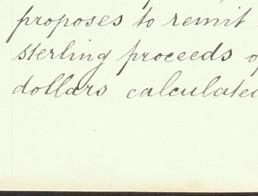 proposes to remit
sterling proceeds
dollars calculated